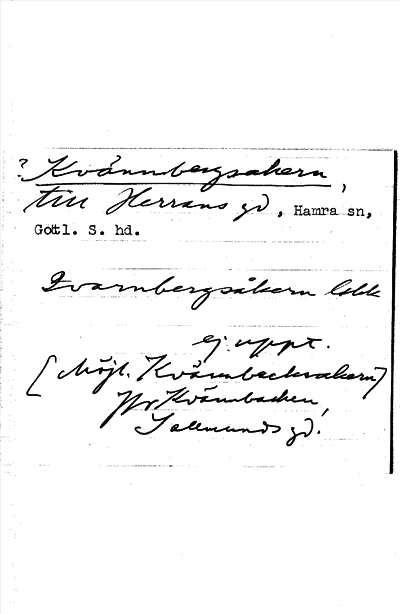 ? Kvännbergsåkern,
till Herrans gd, Hamra sn,
Gotl. S. hd.
Qvarnbergsåkern Lskk
ej uppt.
[Möjl. Kvännbackåkern]
Jfr Kvännbacken,
Sallmunds gd.